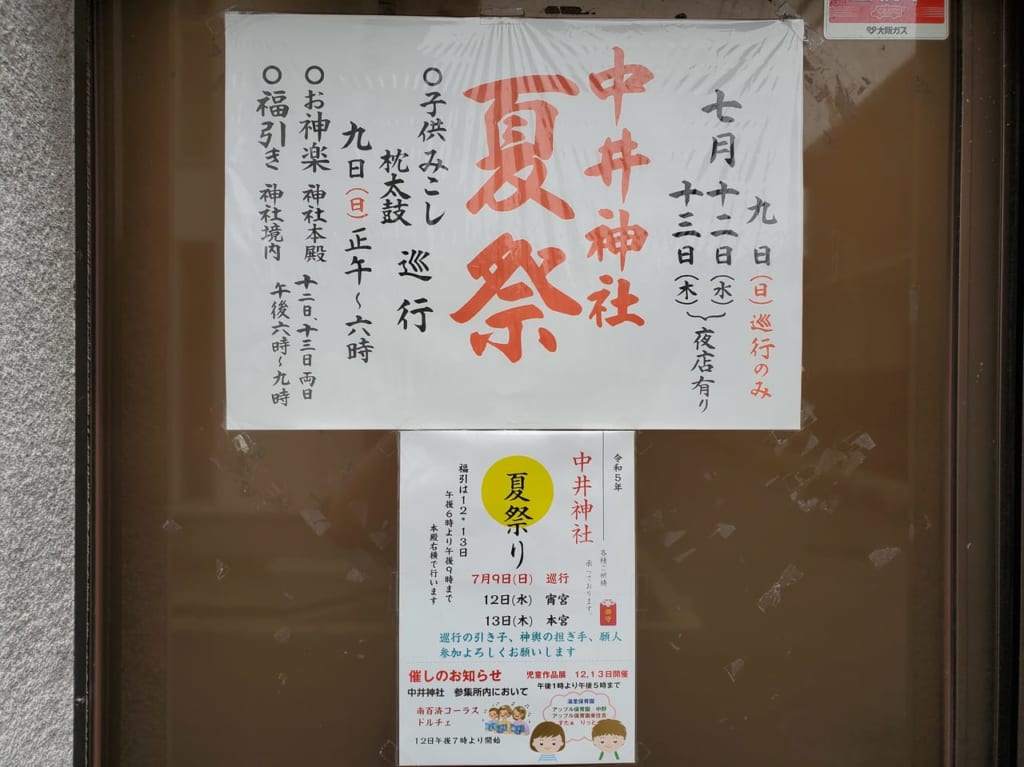 大阪ガス
七月
九日(日)巡行のみ
十二日(水)
十三日(木)
夜店有り
中井神社
夏祭
〇子供みこし
枕太鼓
巡行
九日(日)正午~六時
〇お神楽 神社本殿
〇福引き 神社境内
十二日、十三日両日
午後六時~九時
令和5年
中井神社
各種ご祈祷
承っております。
夏祭り
福引は12・13日
午後6時より午後9時まで
本殿右横で行います
7月9日(日) 巡行
12日(水) 宵宮
13日(木) 本宮
巡行の引き子、神輿の担ぎ手、願人
参加よろしくお願いします
催しのお知らせ
中井神社 参集所内において
南百済コーラス
ドルチェ
12日午後7時より開始
児童作品展 12,13日開催
午後1時より午後5時まで
温里保育園
アップル保育園 中野
アップル保育園東住吉